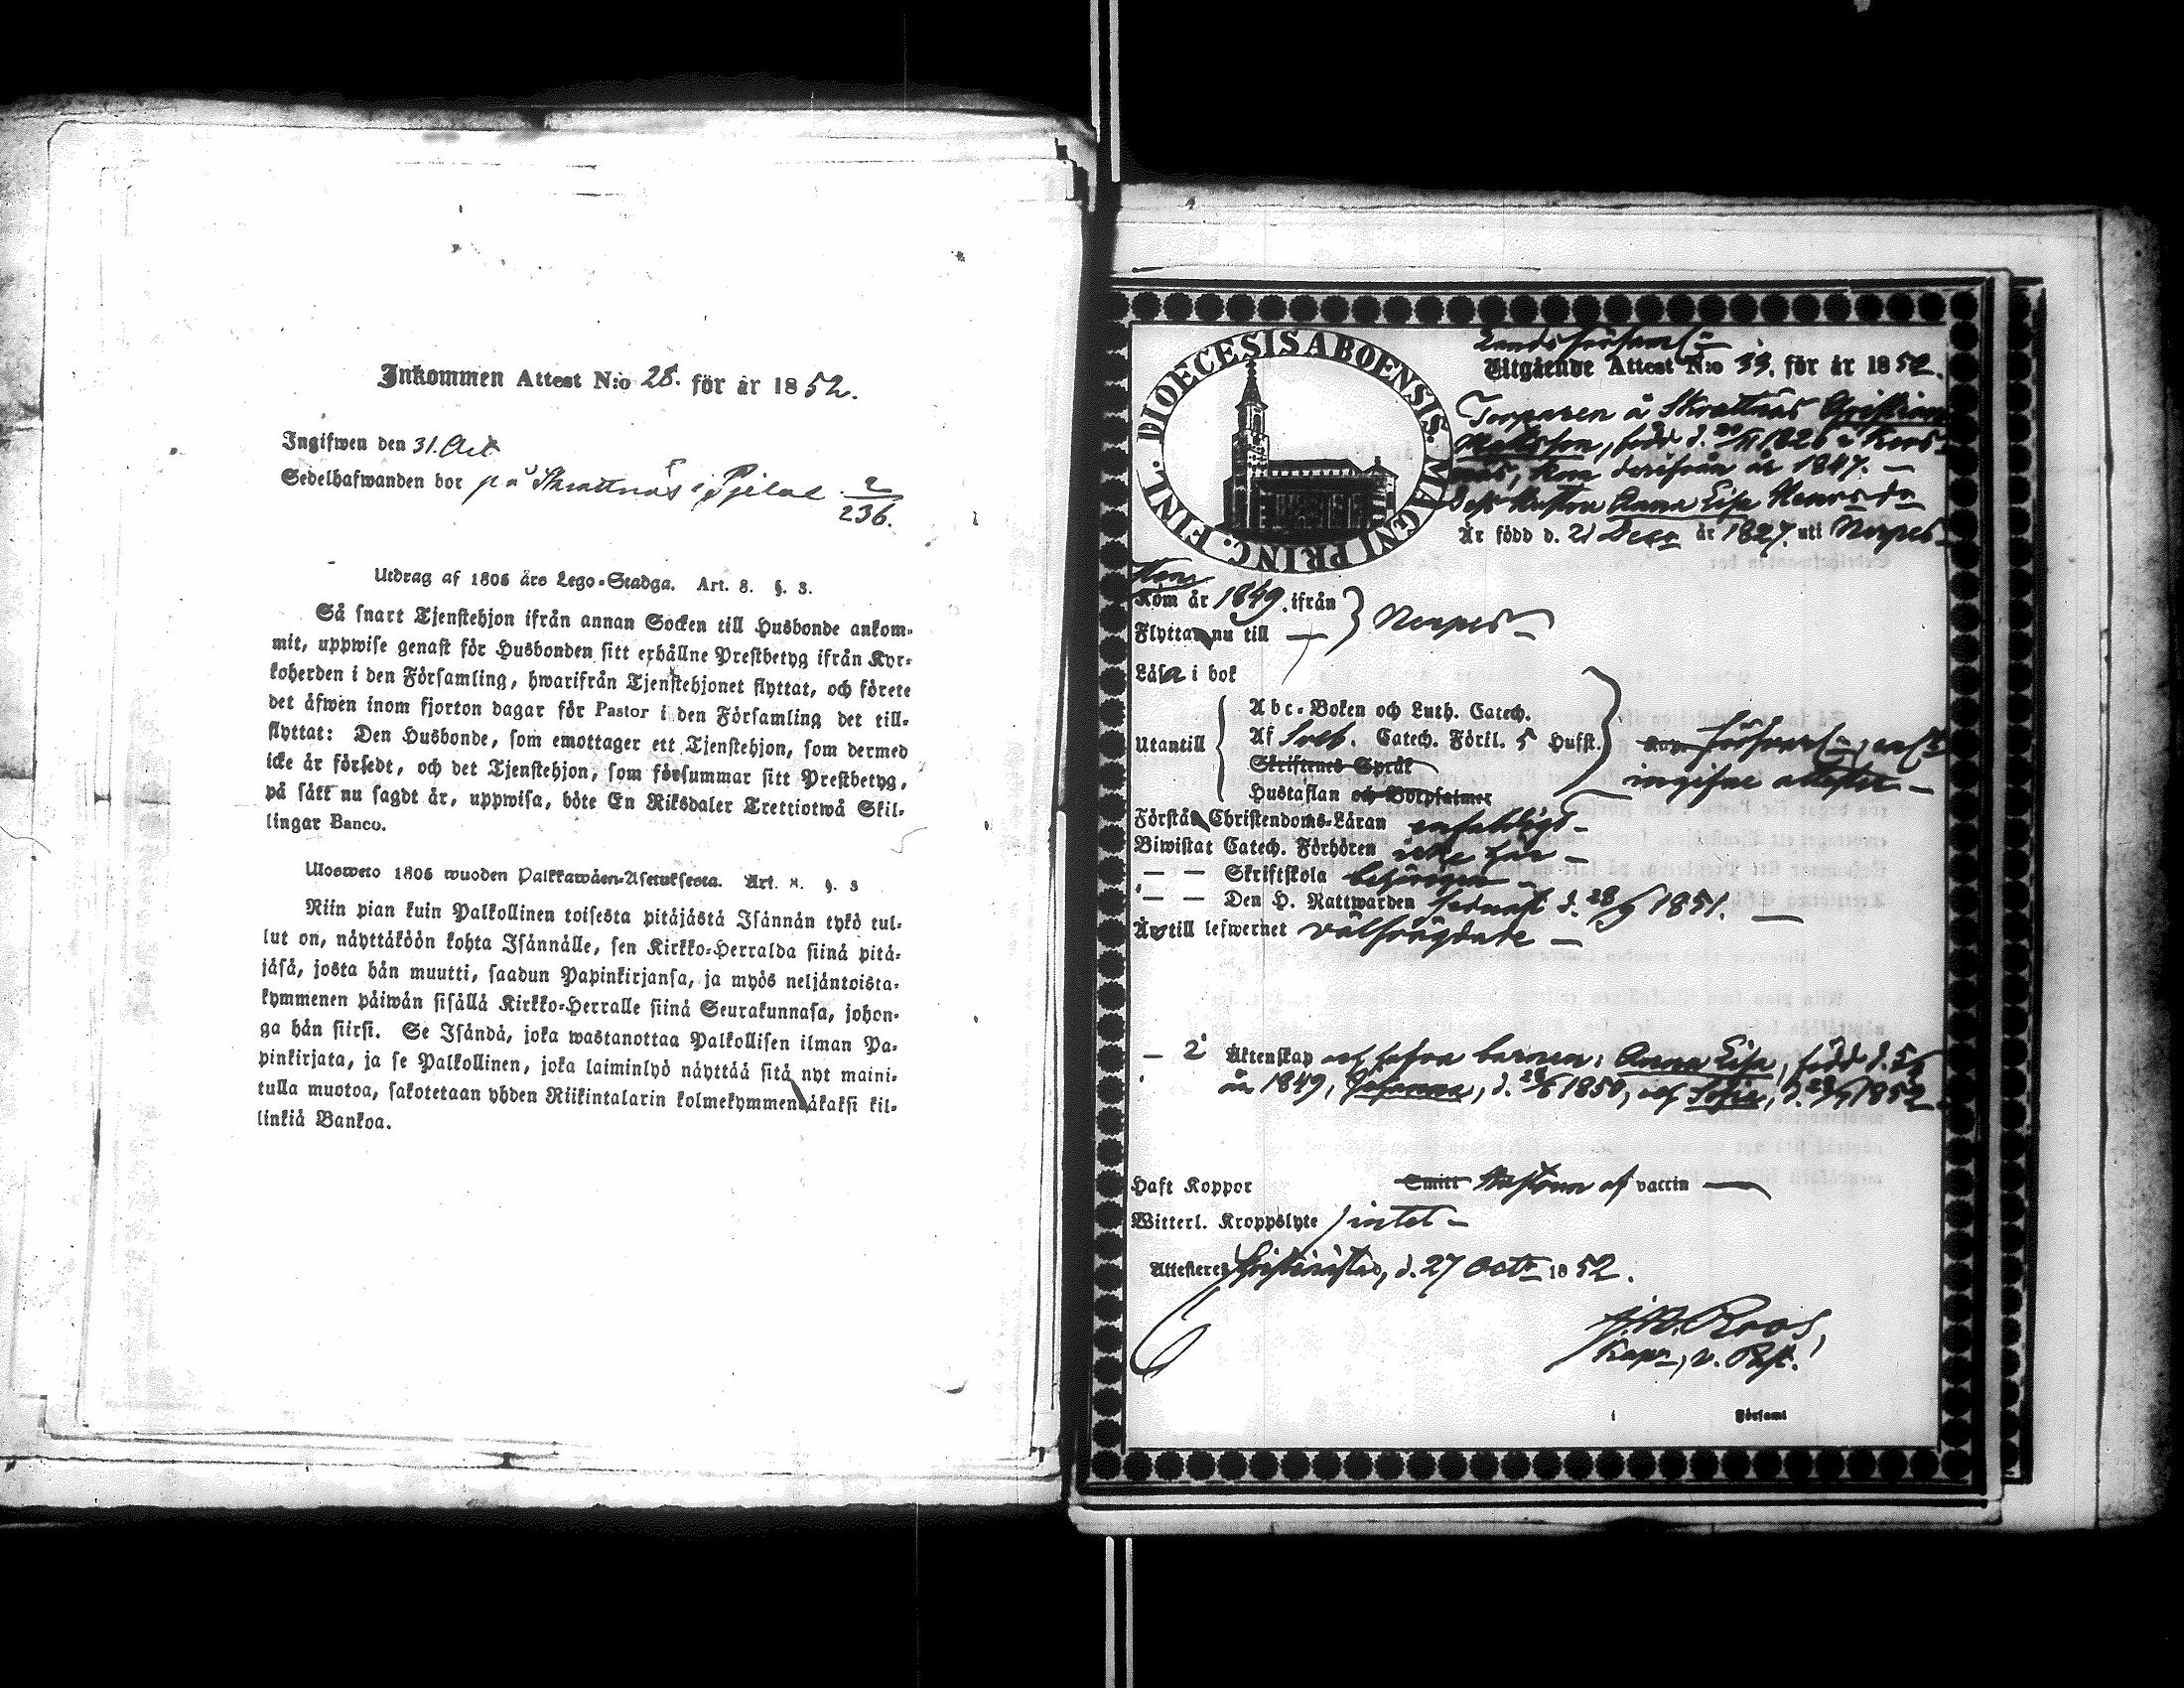 Inkommen Attest N:o 28. för år 1852.
Ingifwen den 31. Oct
Sedelhafwanden bor på Skrattnäs i Pjelas 2/236.
Utdrag af 1805 års Lego-Stadga. Art. 8. §. 3.
Så snart Tjenstehjon ifrån annan Socken till Husbonde ankom-
mit, uppwise genast för Husbonden sitt erhållne Prestbetyg ifrån Kyr-
koherden i den Församling, hwarifrån Tjenstehjonet flyttat, och förete
det äfwen inom fjorton dagar för Pastor i den Församling det till-
flyttat: Den Husbonde, som emottager ett Tjenstehjon, som dermed
icke är försedt, och det Tjenstehjon, som försummar sitt Prestbetyg,
på sätt nu sagdt är, uppwisa, böte En Riksdaler Trettiotwå Skil-
lingar Banco.
Ulosweto 1805 wuoden Palkkawäen-Asetuksesta. Art. 8. §. 3
Niin pian kuin Palkollinen toisesta pitäjästä Isännän tykö tul-
lut on, näyttäköön kohta Isännälle, sen Kirkko-Herralda siinä pitä-
jäsä, josta hän muutti, saadun Papinkirjansa, ja myös neljäntoista-
kymmenen päiwän sisällä Kirkko-Herralle siinä Seurakunnasa, johon-
ga hän siirsi. Se Isändä, joka wastanottaa Palkollisen ilman Pa-
pinkirjata, ja se Palkollinen, joka laiminlyö näyttää sitä nyt maini-
tulla muotoa, sakotetaan yhden Riikintalarin kolmekymmentäkaksi kil-
linkiä Bankoa.
DIOECESIS ABOENSIS. MAGNI PRINC. FINL.
Landsförsaml
Utgående Attest N:o 33. för år 1852.
Torparen å Skrattnäs Christian
Mattsson, född d. 20/11 1826 i Kors-
näs, kom derifrån år 1847. —
Dess hustru Anna Lisa Henrsdr
Är född d. 21 Decr år 1827 uti Nerpes
Hon
Kom år 1849 ifrån
Flyttar nu till — } Nerpes
Läsa i bok
Utantill
Abc-Boken och Luth. Catech.
Af Sveb. Catech. Förkl. 5 Hufst.
Skriftenes Språk
Hustaflan och Botpsalmer
ingifne attester —
Förstå Christendoms-Läran enfaldigt —
Biwistat Catech. Förhören icke här —
— — Skriftskola
— — Den H. Nattwarden sednast d. 28/9 1851. —
Är till lefwernet välfrägdade —
— 2 Äktenskap och hafva barnen: Anna Lisa, född d. 5/6
år 1849, Johanna, d. 28/6 1850, och Sofia, d. 28/9 1852
Haft Koppor Smitt Hustrun af vaccin —
Witterl. Kroppslyte intet —
Attesteres Christinestad, d. 27 Octr 1852.
J. W. Roos,
Kapn, v. Past.
i Församl